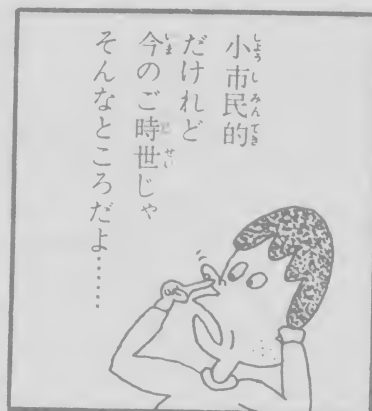 小市民的
だけれど
今のご時世じゃ
そんなところだよ……